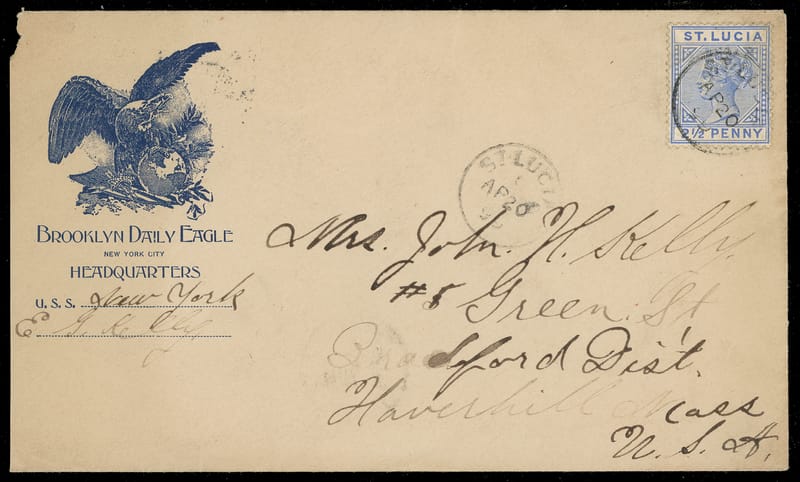 ST. LUCIA
AP 20
2½ PENNY
ST. LUCIA
AP 20
BROOKLYN DAILY EAGLE
NEW YORK CITY
HEADQUARTERS
U. S. S. New York
E Kelly
Mrs. John H. Kelly.
#8 Green. St
Bradford Dist.
Haverhill Mass
U. S. A.